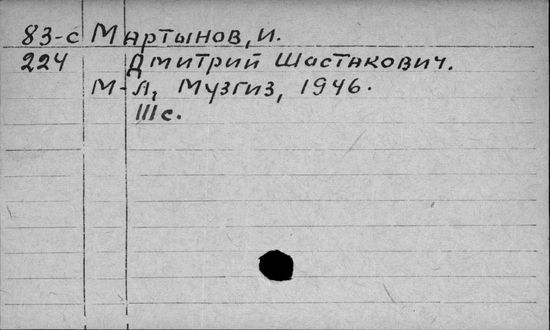 83-с Мартынов, И.
224 Дмитрий Шостакович.
М-Л, Музгиз, 1946.
111 с.